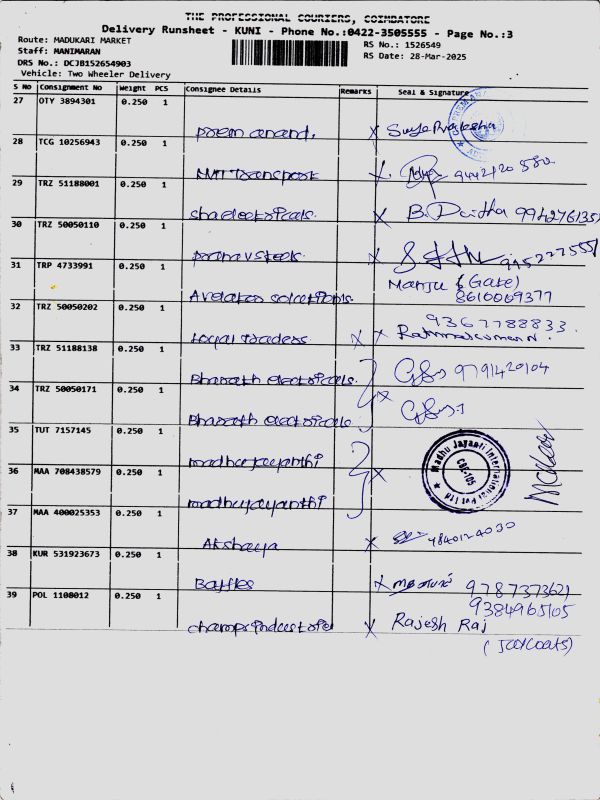 THE PROFESSIONAL COURIERS, COIMBATORE
Delivery Runsheet - KUNI - Phone No.:0422-3505555 - Page No.:3
Route: MADUKARI MARKET
RS No.: 1526549
Staff: MANIMARAN
RS Date: 28-Mar-2025
DRS No.: DCJB152654903
Vehicle: Two Wheeler Delivery
S No Consignment No Weight PCS Consignee Details Remarks Seal & Signature
27 OTY 3894301 0.250 1
prem anand,
28 TCG 10256943 0.250 1
NMT Transport
29 TRZ 51188001 0.250 1
sha electricals. X B.
30 TRZ 50050110 0.250 1
pranav steels.
31 TRP 4733991 0.250 1
Manju (Gate)
8610009377
32 TRZ 50050202 0.250 1
9367788833
Loyal Traders X X
33 TRZ 51188138 0.250 1
Bharath electricals. 9791420104
34 TRZ 50050171 0.250 1
Bharath electricals X
35 TUT 7157145 0.250 1
madhu jayanthi
Madhu Jayanti International Pvt Ltd
CBE-105
36 MAA 708438579 0.250 1
madhu jayanthi X
37 MAA 400025353 0.250 1
Akshaya X 9840124030
38 KUR 531923673 0.250 1
Baffles X 9787373621
39 POL 1108012 0.250 1
9384965105
X Rajesh Raj